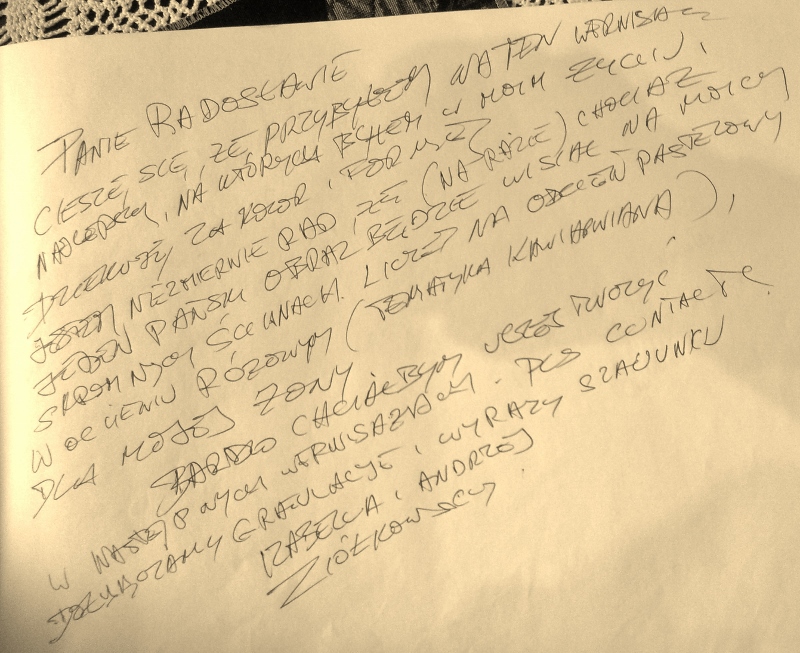 PANIE RADOSŁAWIE
CIESZĘ SIĘ, ŻE PRZYBYŁEM NA TEN WERNISAŻ
NAJLEPSZY, NA KTÓRYCH BYŁEM W MOIM ŻYCIU,
DZIĘKUJĘ ZA KOLOR, FORMĘ
JESTEM NIEZMIERNIE RAD, ŻE (NA RAZIE) CHOCIAŻ
JEDEN PAŃSKI OBRAZ BĘDZIE WISIAŁ NA MOICH
SKROMNYCH ŚCIANACH. LICZĘ NA ODCIEŃ PASTELOWY
W OCIENIU RÓŻOWYM (TEMATYKA KAWIARNIANA),
DLA MOJEJ ŻONY.
BARDZO CHCIAŁBYM UCZESTNICZYĆ
W NASTĘPNYCH WERNISAŻACH. PLS CONTACT
GRATULACJE, WYRAZY SZACUNKU
IZABELLA I ANDRZEJ
ZIÓŁKOWSCY.